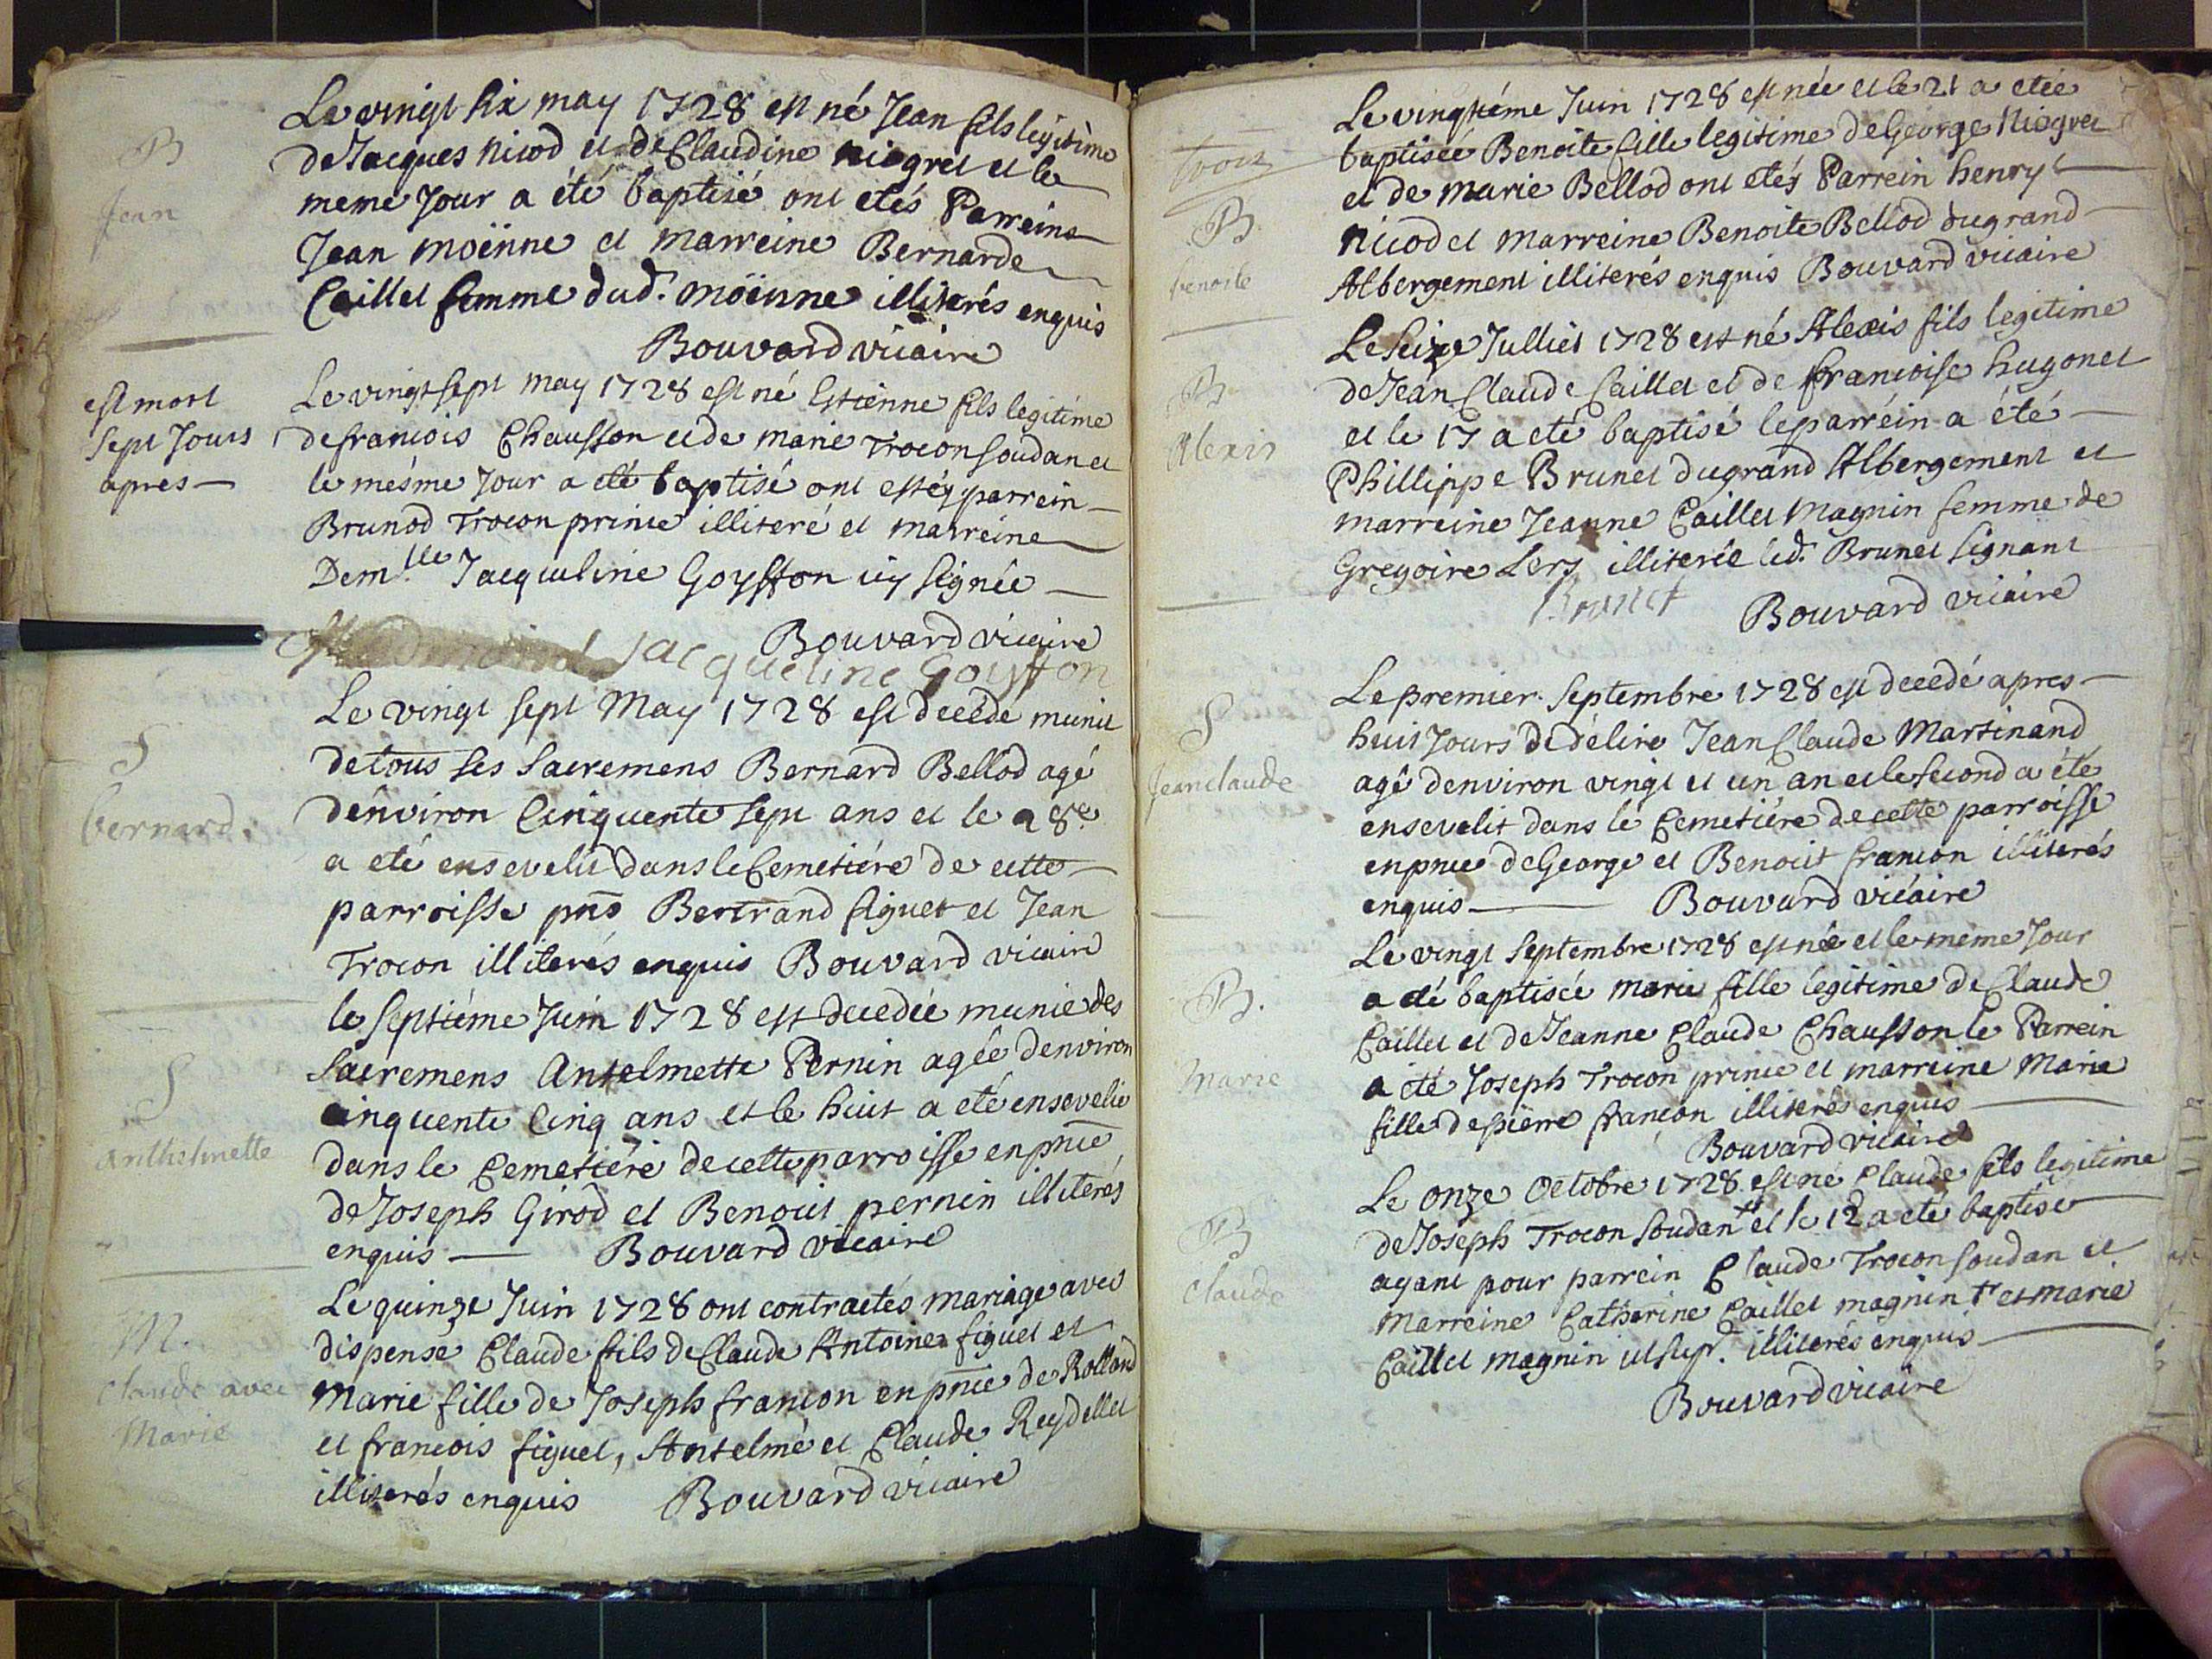 B
Jean
Le vingt six may 1728 est né Jean fils legitime
de Jacques Nicod et de Claudine Niogret et le
meme Jour a été baptisé ont etés Parreins
Jean moënne et marreine Bernarde
Caillet femme dud. moënne illiterés enquis
Bouvard vicaire
est mort
sept Jours
apres
Le vingt sept may 1728 est né Estienne fils legitime
de francois Chausson et de marie Trocon soudan et
le mésme Jour a eté baptisé ont estés parrein
Brunod Trocon prince illiteré et marreine
Dem.lle Jacquuline Goysson icy signée
Bouvard vicaire
Jacqueline Goysson
S
bernard
Le vingt sept May 1728 est decedé munit
de tous ses Sacremens Bernard Bellod agé
denviron Cinquente sept ans et le 28e
a eté ensevelit dans le Cemetiére de cette
parroisse pns Bertrand figuet et Jean
Trocon illiterés enquis Bouvard vicaire
S
anthelmette
le septiéme Juin 1728 est decedée munie des
Sacremens Antelmette Pernin agée denviron
cinquente Cinq ans et le huit a eté ensevelie
dans le Cemetiére de cette parroisse en pnce
de Joseph Girod et Benoit pernin illiterés
enquis Bouvard vicaire
M.
Claude avec
Marie
Le quinze Juin 1728 ont contractés mariage avec
dispense Claude fils de Claude Antoine figuet et
Marie fille de Joseph francon en pnce de Rolland
et francois figuet, Antelme et Claude Reydellet
illiterés enquis Bouvard vicaire
trois
B
benoite
Le vingtiéme Juin 1728 est née et le 21 a etée
baptisée Benoite fille legitime de George Niogret
et de marie Bellod ont etés Parrein henry
Nicod et Marreine Benoite Bellod du grand
Albergement illiterés enquis Bouvard vicaire
B
Alexis
Le Seize Julliet 1728 est né Alexis fils legitime
de Jean Claude Caillet et de francoise hugonet
et le 17 a eté baptisé le parréin a été
Phillippe Brunet du grand Albergement et
marreine Jeanne Caillet Magnin femme de
Gregoire Lers illiterée led. Brunet signant
Brunet
Bouvard vicaire
S
Jean claude
Le premier Septembre 1728 est decedé apres
huit Jours de délire Jean Claude Martinand
agé denviron vingt et un an et le second a été
ensevelit dans le Cemetiére de cette parroisse
en pnce de George et Benoit francon illiterés
enquis Bouvard vicaire
B.
Marie
Le vingt Septembre 1728 est née et le méme Jour
a eté baptisée marie fille légitime de Claude
Caillet et de Jeanne Claude Chausson le Parrein
a été Joseph Trocon prince et marreine Marie
fille de pierre francon illiterés enquis
Bouvard vicaire
B
Claude
Le onze Octobre 1728 est né Claude fils legitime
de Joseph Trocon Soudan + et le 12 a eté baptisé
ayant pour parrein Claude Trocon soudan et
Marreine Catherine Caillet magnin + et marie
Caillet magnin ut sup. illiterés enquis
Bouvard vicaire